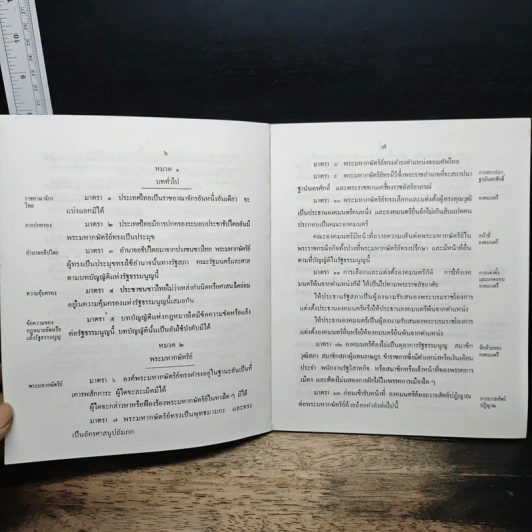 ๖
หมวด ๑
บททั่วไป
ราชอาณาจักรไทย
มาตรา ๑ ประเทศไทยเป็นราชอาณาจักรอันหนึ่งอันเดียว จะ
แบ่งแยกมิได้
การปกครอง
มาตรา ๒ ประเทศไทยมีการปกครองระบอบประชาธิปไตยอันมี
พระมหากษัตริย์ทรงเป็นประมุข
อำนาจอธิปไตย
มาตรา ๓ อำนาจอธิปไตยมาจากปวงชนชาวไทย พระมหากษัตริย์
ผู้ทรงเป็นประมุขทรงใช้อำนาจนั้นทางรัฐสภา คณะรัฐมนตรีและศาล
ตามบทบัญญัติแห่งรัฐธรรมนูญนี้
ความคุ้มครอง
มาตรา ๔ ประชาชนชาวไทยไม่ว่าเหล่ากำเนิดหรือศาสนาใดย่อม
อยู่ในความคุ้มครองแห่งรัฐธรรมนูญนี้เสมอกัน
ข้อความของ
กฎหมายขัดหรือ
แย้งรัฐธรรมนูญ
มาตรา ๕ บทบัญญัติแห่งกฎหมายใดมีข้อความขัดหรือแย้ง
ต่อรัฐธรรมนูญนี้ บทบัญญัตินั้นเป็นอันใช้บังคับมิได้
หมวด ๒
พระมหากษัตริย์
พระมหากษัตริย์
มาตรา ๖ องค์พระมหากษัตริย์ทรงดำรงอยู่ในฐานะอันเป็นที่
เคารพสักการะ ผู้ใดจะละเมิดมิได้
ผู้ใดจะกล่าวหาหรือฟ้องร้องพระมหากษัตริย์ในทางใด ๆ มิได้
มาตรา ๗ พระมหากษัตริย์ทรงเป็นพุทธมามกะ และทรง
เป็นอัครศาสนูปถัมภก
๗
มาตรา ๘ พระมหากษัตริย์ทรงดำรงตำแหน่งจอมทัพไทย
มาตรา ๙ พระมหากษัตริย์ทรงไว้ซึ่งพระราชอำนาจที่จะสถาปนา
ฐานันดรศักดิ์ และพระราชทานเครื่องราชอิสริยาภรณ์
การสถาปนา
ฐานันดรศักดิ์
มาตรา ๑๐ พระมหากษัตริย์ทรงเลือกและแต่งตั้งผู้ทรงคุณวุฒิ
เป็นประธานองคมนตรีคนหนึ่ง และองคมนตรีอื่นอีกไม่เกินสิบแปดคน
ประกอบเป็นคณะองคมนตรี
องคมนตรี
คณะองคมนตรีมีหน้าที่ถวายความเห็นต่อพระมหากษัตริย์ใน
พระราชกรณียกิจทั้งปวงที่พระมหากษัตริย์ทรงปรึกษา และมีหน้าที่อื่น
ตามที่บัญญัติไว้ในรัฐธรรมนูญนี้
หน้าที่
องคมนตรี
มาตรา ๑๑ การเลือกและแต่งตั้งองคมนตรีก็ดี การให้องค
มนตรีพ้นจากตำแหน่งก็ดี ให้เป็นไปตามพระราชอัธยาศัย
ให้ประธานรัฐสภาเป็นผู้ลงนามรับสนองพระบรมราชโองการ
แต่งตั้งประธานองคมนตรีหรือให้ประธานองคมนตรีพ้นจากตำแหน่ง
ให้ประธานองคมนตรีเป็นผู้ลงนามรับสนองพระบรมราชโองการ
แต่งตั้งองคมนตรีอื่นหรือให้องคมนตรีอื่นพ้นจากตำแหน่ง
มาตรา ๑๒ องคมนตรีต้องไม่เป็นตุลาการรัฐธรรมนูญ สมาชิก
วุฒิสภา สมาชิกสภาผู้แทนราษฎร ข้าราชการซึ่งมีตำแหน่งหรือเงินเดือน
ประจำ พนักงานรัฐวิสาหกิจ หรือสมาชิกหรือเจ้าหน้าที่ของพรรคการ
เมือง และต้องไม่แสดงการฝักใฝ่ในพรรคการเมืองใด ๆ
ข้อห้ามของ
องคมนตรี
มาตรา ๑๓ ก่อนเข้ารับหน้าที่ องคมนตรีต้องถวายสัตย์ปฏิญาณ
ต่อพระมหากษัตริย์ด้วยถ้อยคำดังต่อไปนี้
การถวายสัตย์
ปฏิญาณ
10
9